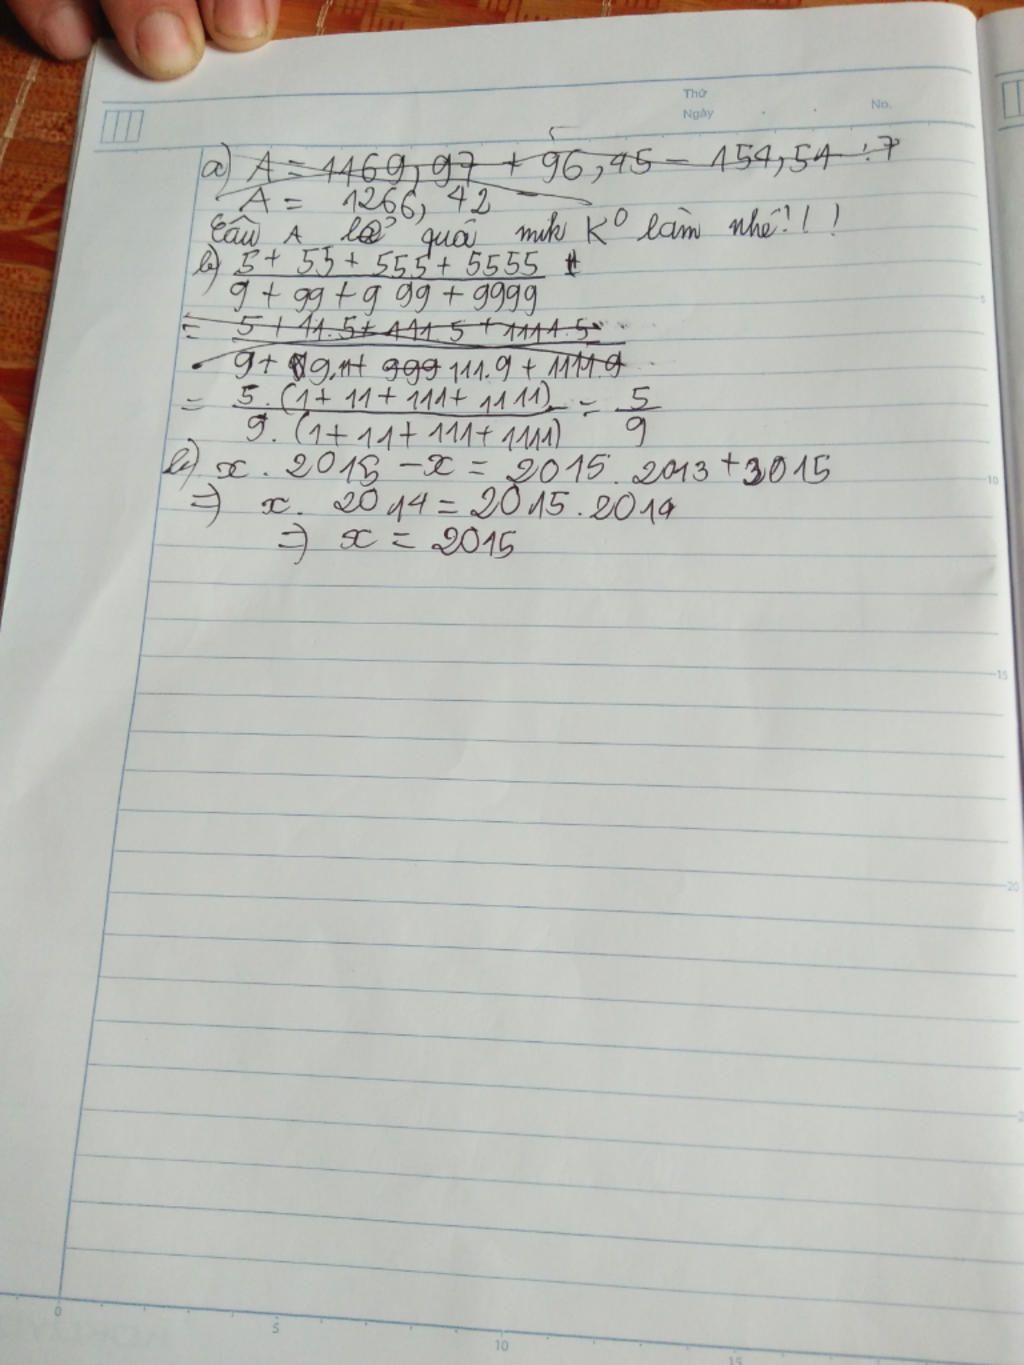 Thứ
Ngày No.
a) A = 1169,97 + 96,45 - 154,54 : 7
A = 1266,42 -
Câu A lẻ quá mik K⁰ làm nhé!!!
b) 5 + 55 + 555 + 5555
9 + 99 + 999 + 9999
= 5 + 11.5 + 111.5 + 1111.5
9 + 9.11 + 999 111.9 + 1111.9
= 5.(1 + 11 + 111 + 1111) = 5
9.(1 + 11 + 111 + 1111) 9
b) x . 2015 - x = 2015.2013 + 2015
=) x. 2014 = 2015.2014
=) x = 2015
5
10
15
20
0
5
10
15